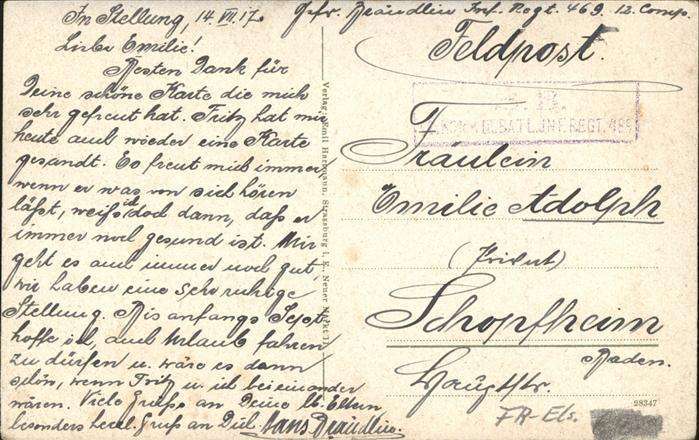 In Stellung, 14.VII.17.
Liebe Emilie!
Besten Dank für
Deine schöne Karte die mich
sehr gefreut hat. Fritz hat mir
heute auch wieder eine Karte
gesandt. Es freut mich immer
wenn er was von sich hören
läßt, weiß ich doch dann, daß er
immer noch gesund ist. Mir
geht es auch immer noch gut,
wir haben eine sehr ruhige
Stellung. Bis anfangs Sept.
hoffe ich, auch Urlaub fahren
zu dürfen u. wäre es dann
schön, wenn Fritz u. ich beieinander
wären. Viele Grüße an Deine lb. Eltern
besonders herzl. Gruß an Dich Hans Brändlin.
Gefr. Brändlin Inf. Regt. 469. 12. Comp.
Feldpost.
Fräulein
Emilie Adolph
(Privat)
Schopfheim
Baden.
Hauptstr.
Verlag Emil Hartmann, Strassburg i. E., Neuer Markt 11
28347
FA-Els.